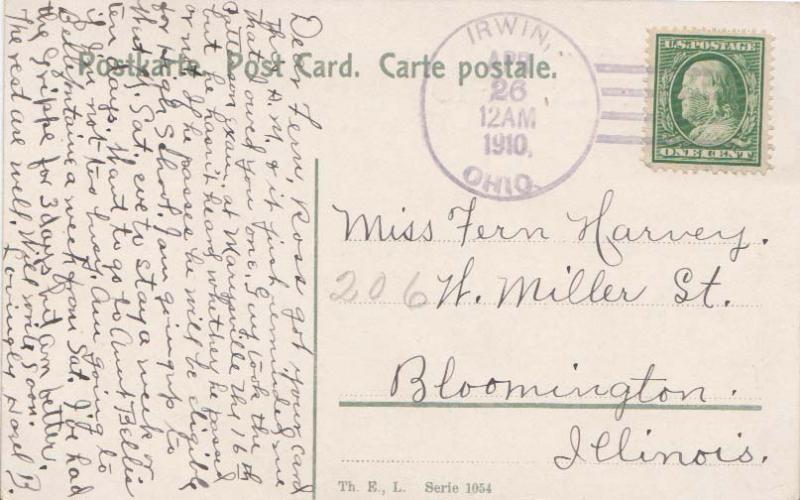 Postkarte. Post Card. Carte postale.
IRWIN,
APR
26
12AM
1910,
OHIO.
U.S. POSTAGE
ONE CENT
Dear Fern, Ross got your card
this A.M. & it just reminded me
that I owed you one. Guy took the
Patterson exam. at Marysville the 16th
but he hasn't heard whether he passed
or not. If he passes he will be eligible
for High School. I am going up to
Sat. eve to stay a week or
ten days. Want to go to Aunt Bellie
if I'm not too busy. Am going to
Bellefontaine a week from Sat. I've had
the Grippe for 3 days but am better.
The rest are well. Will write soon.
Lovingly Hazel B.
Miss Fern Harvey.
206 W. Miller St.
Bloomington.
Illinois.
Th. E., L. Serie 1054